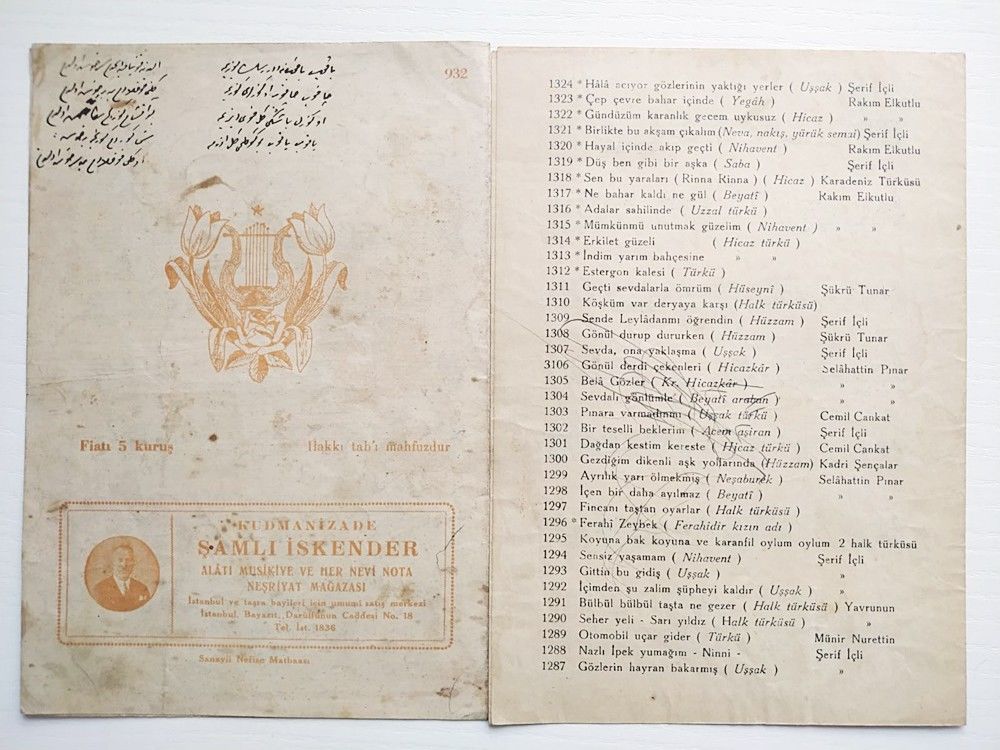 932
Fiatı 5 kuruş
Hakkı tab'ı mahfuzdur
KUDMANİZADE
ŞAMLI İSKENDER
ALÂTI MUSİKİYE VE HER NEVİ NOTA
NEŞRİYAT MAĞAZASI
İstanbul ve taşra bayileri için umumî satış merkezi
İstanbul, Bayazıt, Darülfünun Caddesi No. 18
Tel. İst. 1836
Sanayii Nefise Matbaası
1324 * Hâlâ acıyor gözlerinin yaktığı yerler ( Uşşak ) Şerif İçli
1323 * Çep çevre bahar içinde ( Yegâh ) Rakım Elkutlu
1322 * Gündüzüm karanlık gecem uykusuz ( Hicaz ) » »
1321 * Birlikte bu akşam çıkalım (Neva, nakış, yürük semai) Şerif İçli
1320 * Hayal içinde akıp geçti ( Nihavent ) Rakım Elkutlu
1319 * Düş ben gibi bir aşka ( Saba ) Şerif İçli
1318 * Sen bu yaraları ( Rinna Rinna ) ( Hicaz ) Karadeniz Türküsü
1317 * Ne bahar kaldı ne gül ( Beyatî ) Rakım Elkutlu
1316 * Adalar sahilinde ( Uzzal türkü )
1315 * Mümkünmü unutmak güzelim ( Nihavent ) » »
1314 * Erkilet güzeli ( Hicaz türkü )
1313 * İndim yarım bahçesine » »
1312 * Estergon kalesi ( Türkü )
1311 Geçti sevdalarla ömrüm ( Hüseynî ) Şükrü Tunar
1310 Köşküm var deryaya karşı (Halk türküsü)
1309 Sende Leylâdanmı öğrendin ( Hüzzam ) Şerif İçli
1308 Gönül durup dururken ( Hüzzam ) Şükrü Tunar
1307 Sevda, ona yaklaşma ( Uşşak ) Şerif İçli
3106 Gönül derdi çekenleri ( Hicazkâr ) Selâhattin Pınar
1305 Belâ Gözler ( Kr. Hicazkâr ) » »
1304 Sevdalı gönlümle ( Beyatî araban ) » »
1303 Pınara varmadınmı ( Uşşak türkü ) Cemil Cankat
1302 Bir teselli beklerim ( Acem aşiran ) Şerif İçli
1301 Dağdan kestim kereste ( Hicaz türkü ) Cemil Cankat
1300 Gezdiğim dikenli aşk yollarında (Hüzzam) Kadri Şençalar
1299 Ayrılık yarı ölmekmiş ( Neşaburek ) Selâhattin Pınar
1298 İçen bir daha ayılmaz ( Beyatî ) » »
1297 Fincanı taştan oyarlar ( Halk türküsü )
1296 * Ferahî Zeybek ( Ferahidir kızın adı )
1295 Koyuna bak koyuna ve karanfil oylum oylum 2 halk türküsü
1294 Sensiz yaşamam ( Nihavent ) Şerif İçli
1293 Gittin bu gidiş ( Uşşak ) »
1292 İçimden şu zalim şüpheyi kaldır ( Uşşak ) »
1291 Bülbül bülbül taşta ne gezer ( Halk türküsü ) Yavrunun
1290 Seher yeli - Sarı yıldız ( Halk türküsü ) »
1289 Otomobil uçar gider ( Türkü ) Münir Nurettin
1288 Nazlı İpek yumağım - Ninni - Şerif İçli
1287 Gözlerin hayran bakarmış ( Uşşak ) »